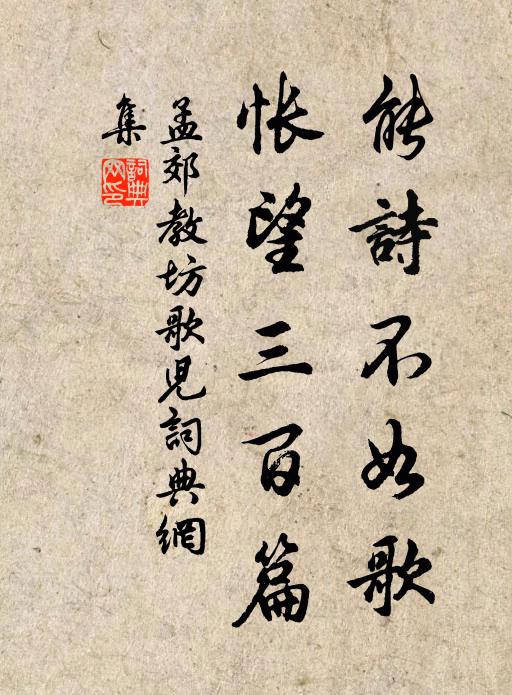 能詩不如歌
悵望三百篇
孟郊教坊歌兒詞典網
集
詞典網印